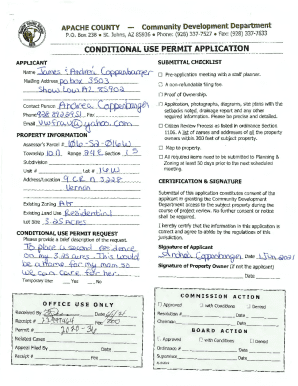 APACHE COUNTY — Community Development Department
P.O. Box 238 • St. Johns, AZ 85936 • Phone: (928) 337-7527 • Fax: (928) 337-7633
CONDITIONAL USE PERMIT APPLICATION
APPLICANT
Name James & Andrea Coppenbarger
Mailing Address po box 3503
Show Low AZ 85902
Contact Person: Andrea Coppenbarger
Phone Fax
Email @yahoo.com
PROPERTY INFORMATION
Assessor's Parcel # 106-52-016W
Township 10N Range 24E Section 15
Subdivision
Unit # Lot # 16W
Address/Location 9 CR N 3228
Vernon
Existing Zoning
Existing Land Use Residential
Lot Size 3.85 acres
CONDITIONAL USE PERMIT REQUEST
Please provide a brief description of the request.
To place a second residence
on my 3.85 acres. This would
be a home for my mom so
we can care for her.
Temporary Use: Yes No
OFFICE USE ONLY
Received By Date
Receipt # Fee
Permit #
Related Cases
Appeal Filed By Date
Receipt # Fee
SUBMITTAL CHECKLIST
Pre-application meeting with a staff planner.
A non-refundable filing fee.
Proof of Ownership.
Application, photographs, diagrams, site plans with the setbacks noted, drainage report and any other required information. Please be precise and detailed.
Citizen Review Process as listed in ordinance Section 1106. A list of names and addresses of all the property owners within 300 feet of subject property.
Map to property.
All required items need to be submitted to Planning & Zoning at least 30 days prior to the next scheduled meeting.
CERTIFICATION & SIGNATURE
Submittal of this application constitutes consent of the applicant in granting the Community Development Department access to the subject property during the course of project review. No further consent or notice shall be required.
I hereby certify that the information in this application is correct and agree to abide by the regulations of this jurisdiction.
Signature of Applicant
Andrea Coppenbarger Date
Signature of Property Owner (if not the applicant)
Date
COMMISSION ACTION
Approved with Conditions Denied
Resolution # Date
Chairman Date
BOARD ACTION
Approved with Conditions Denied
Ordinance # Date
Supervisor Date